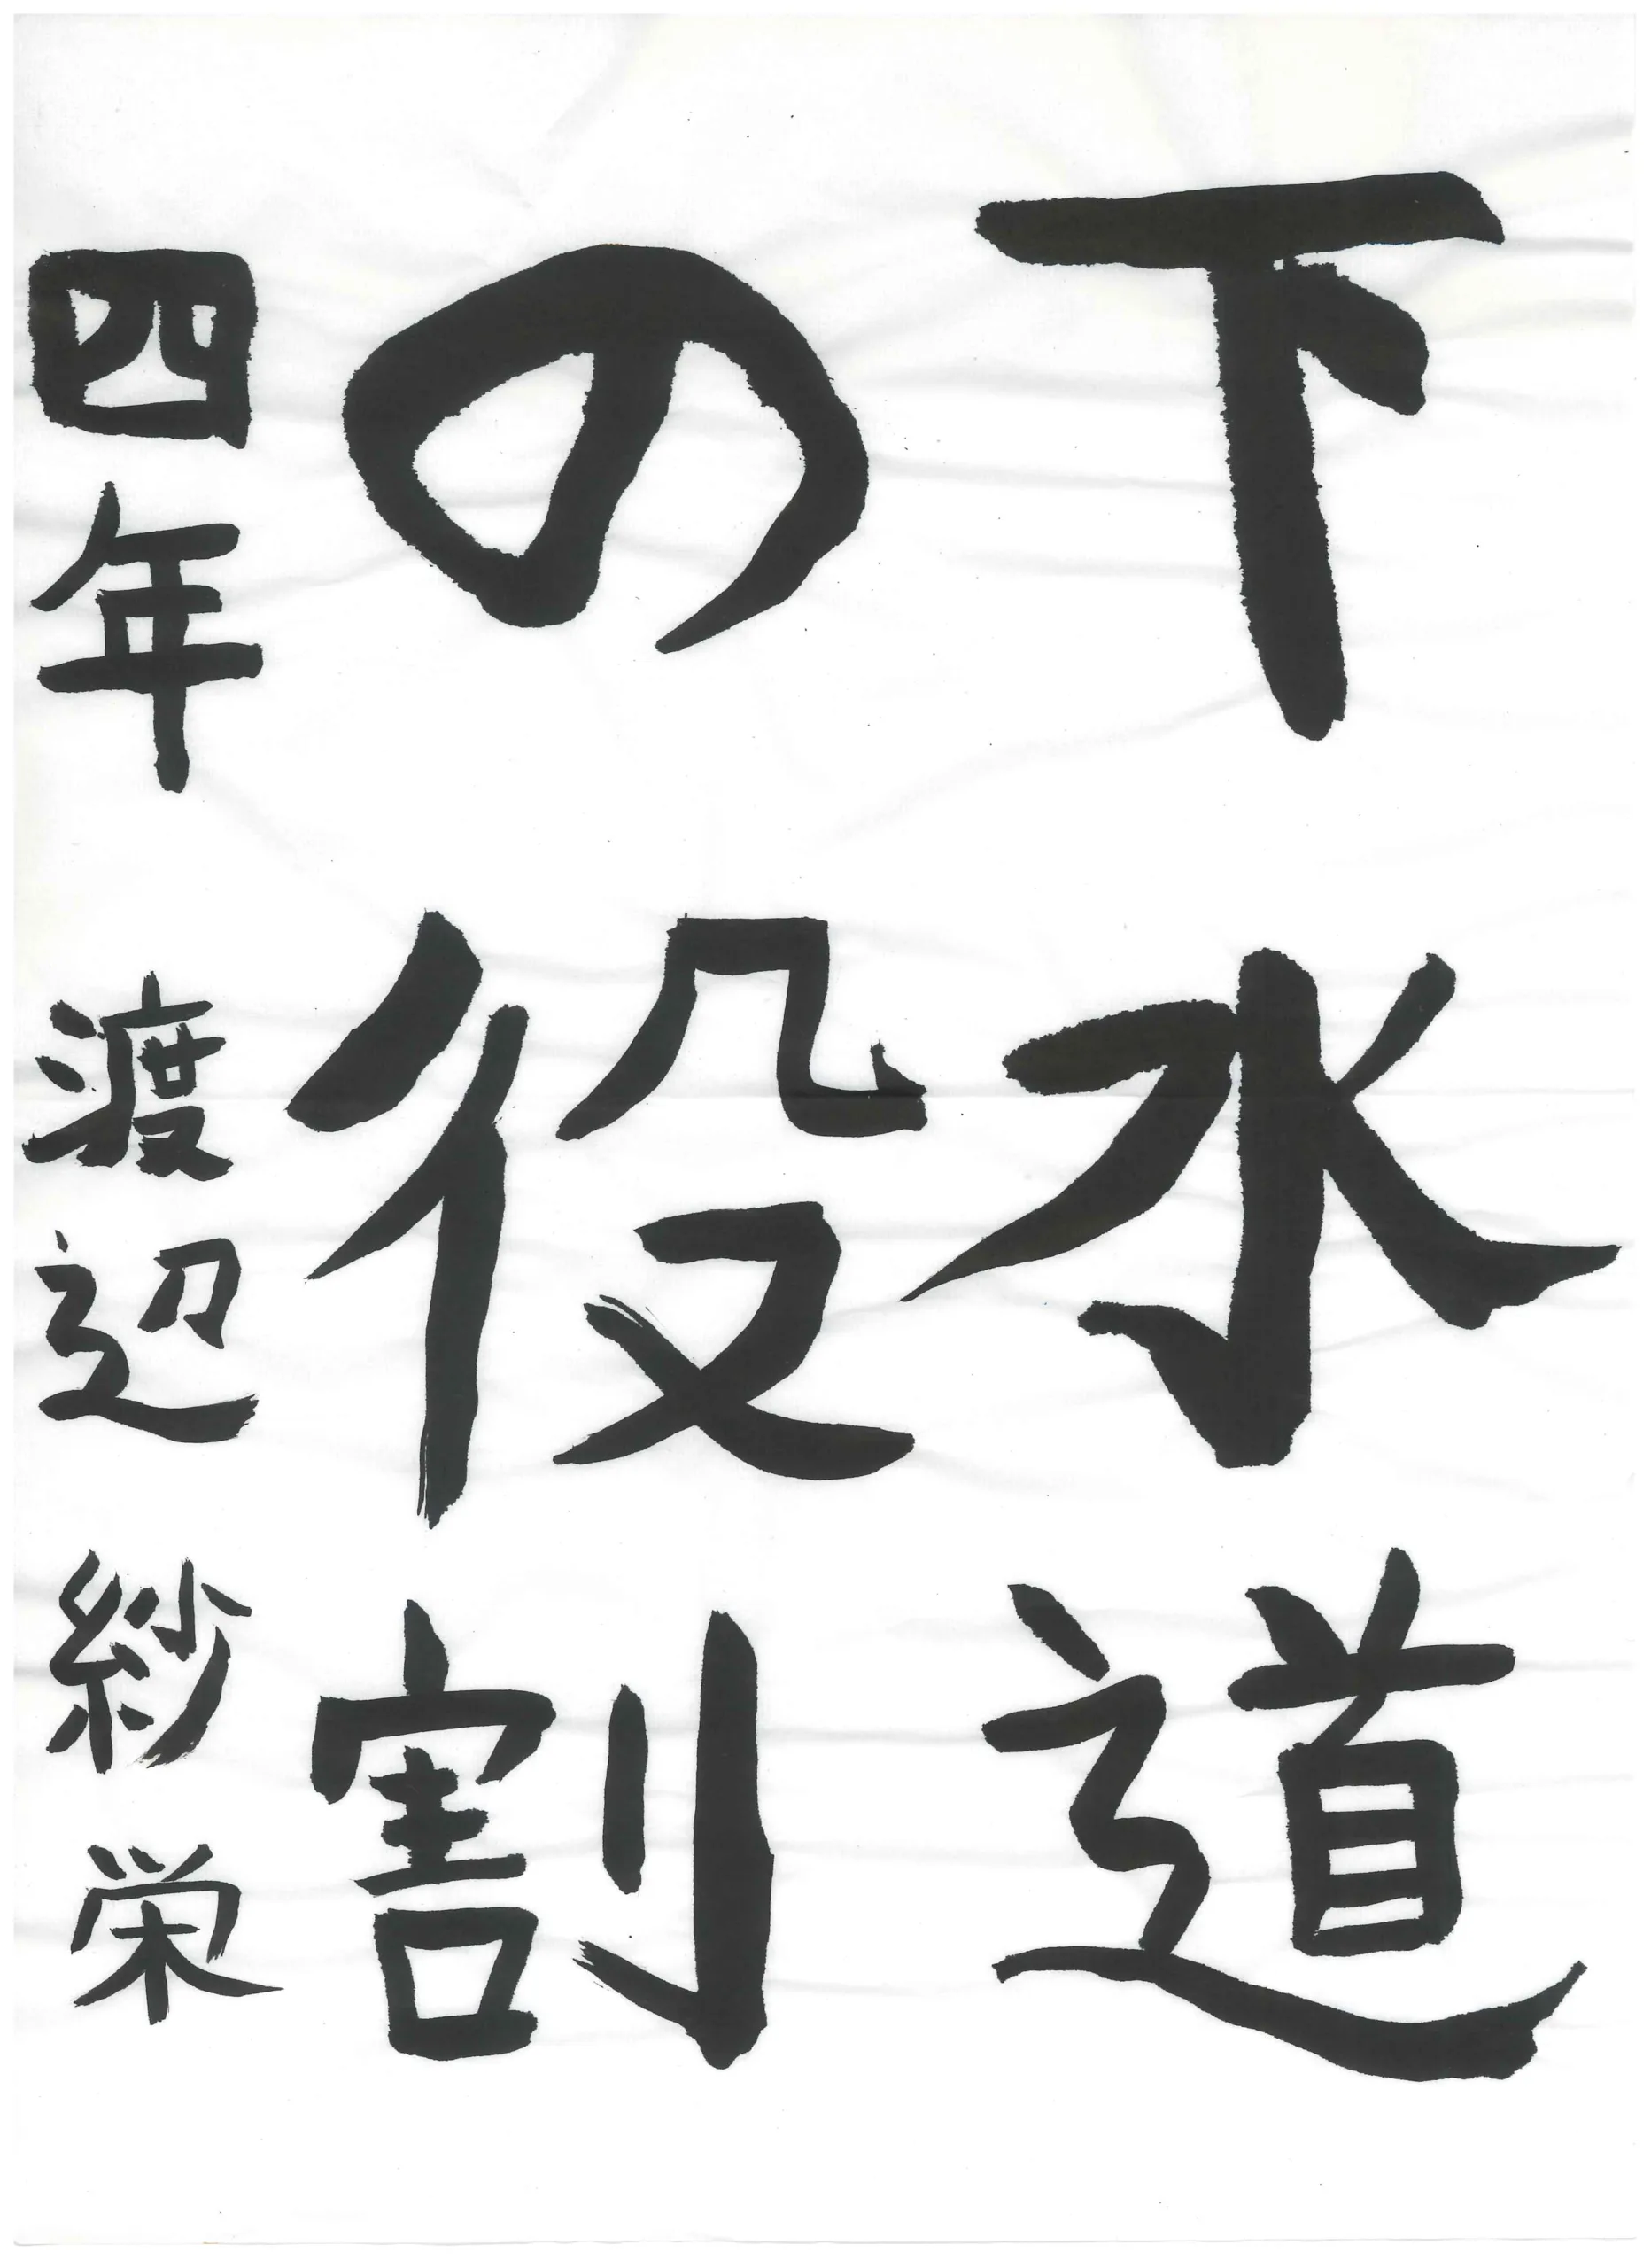 下水道
の役割
四年 渡辺紗栄